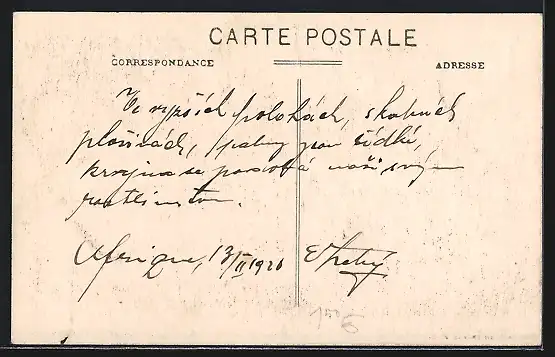 CARTE POSTALE
CORRESPONDANCE
ADRESSE
Ve vyšších polohách, skalných
plošinách, palmy jsou řídké,
krajina se podobá naší svým
rostlinstvem.
Afrique, 13/II 1920